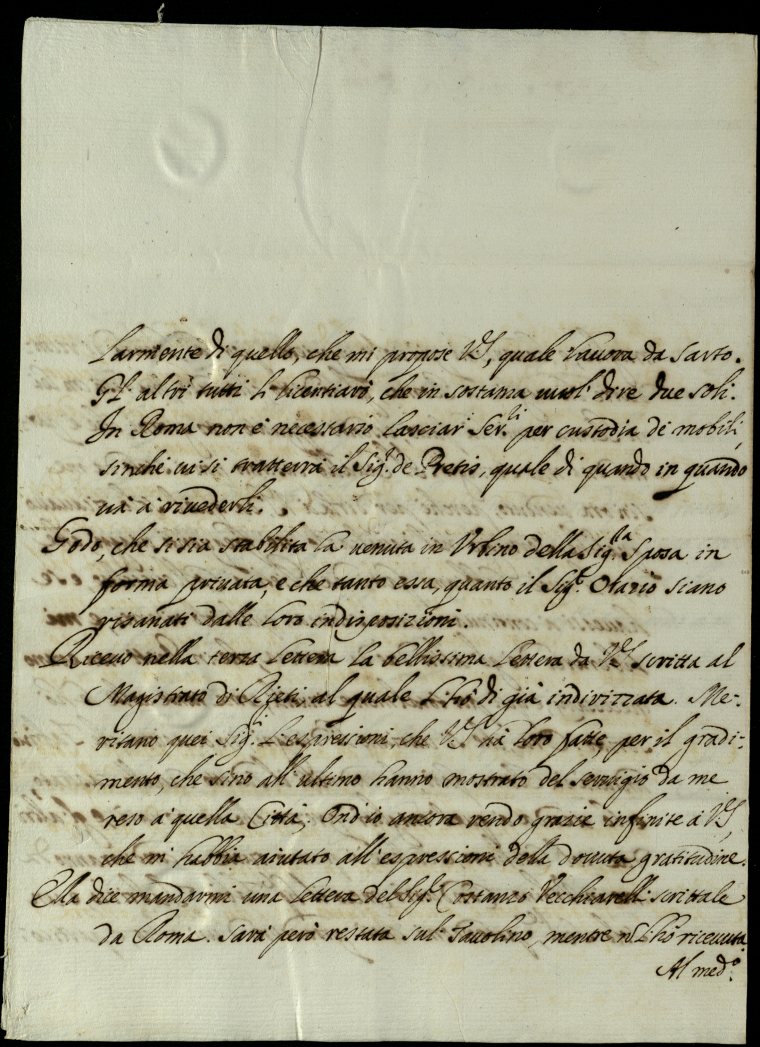 larmente di quello, che mi propose VS, quale lavora da sarto.
Gl' altri tutti li licentiarò, che in sostanza vuol dire due soli.
In Roma non è necessario lasciar Ser.li per custodia de mobili,
sinche vi si tratterrà il Sig.r de Pretis, quale di quando in quando
và à rivederli.
Godo, che si sia stabilita la venuta in Urbino della Sig.ra Sposa in
forma privata, e che tanto essa, quanto il Sig.r Orazio siano
risanati dalle loro indisposizioni.
Ricevo nella terza lettera la bellissima lettera da VS scritta al
Magistrato di Rieti, al quale l'hò di già indirizzata. Me-
ritano quei Sig.ri l'espressioni, che VS hà loro fatte, per il gradi-
mento, che sino all' ultimo hanno mostrato del servigio da me
reso à quella Città; Ond'io ancora rendo grazie infinite à VS,
che mi habbia aiutato all' espressioni della dovuta gratitudine.
Ella dice mandarmi una lettera del Sig.r Costanzo Vecchiarelli scrittale
da Roma. Sarà però restata sul Tavolino, mentre nõ l'hò ricevuta.
Al med.o